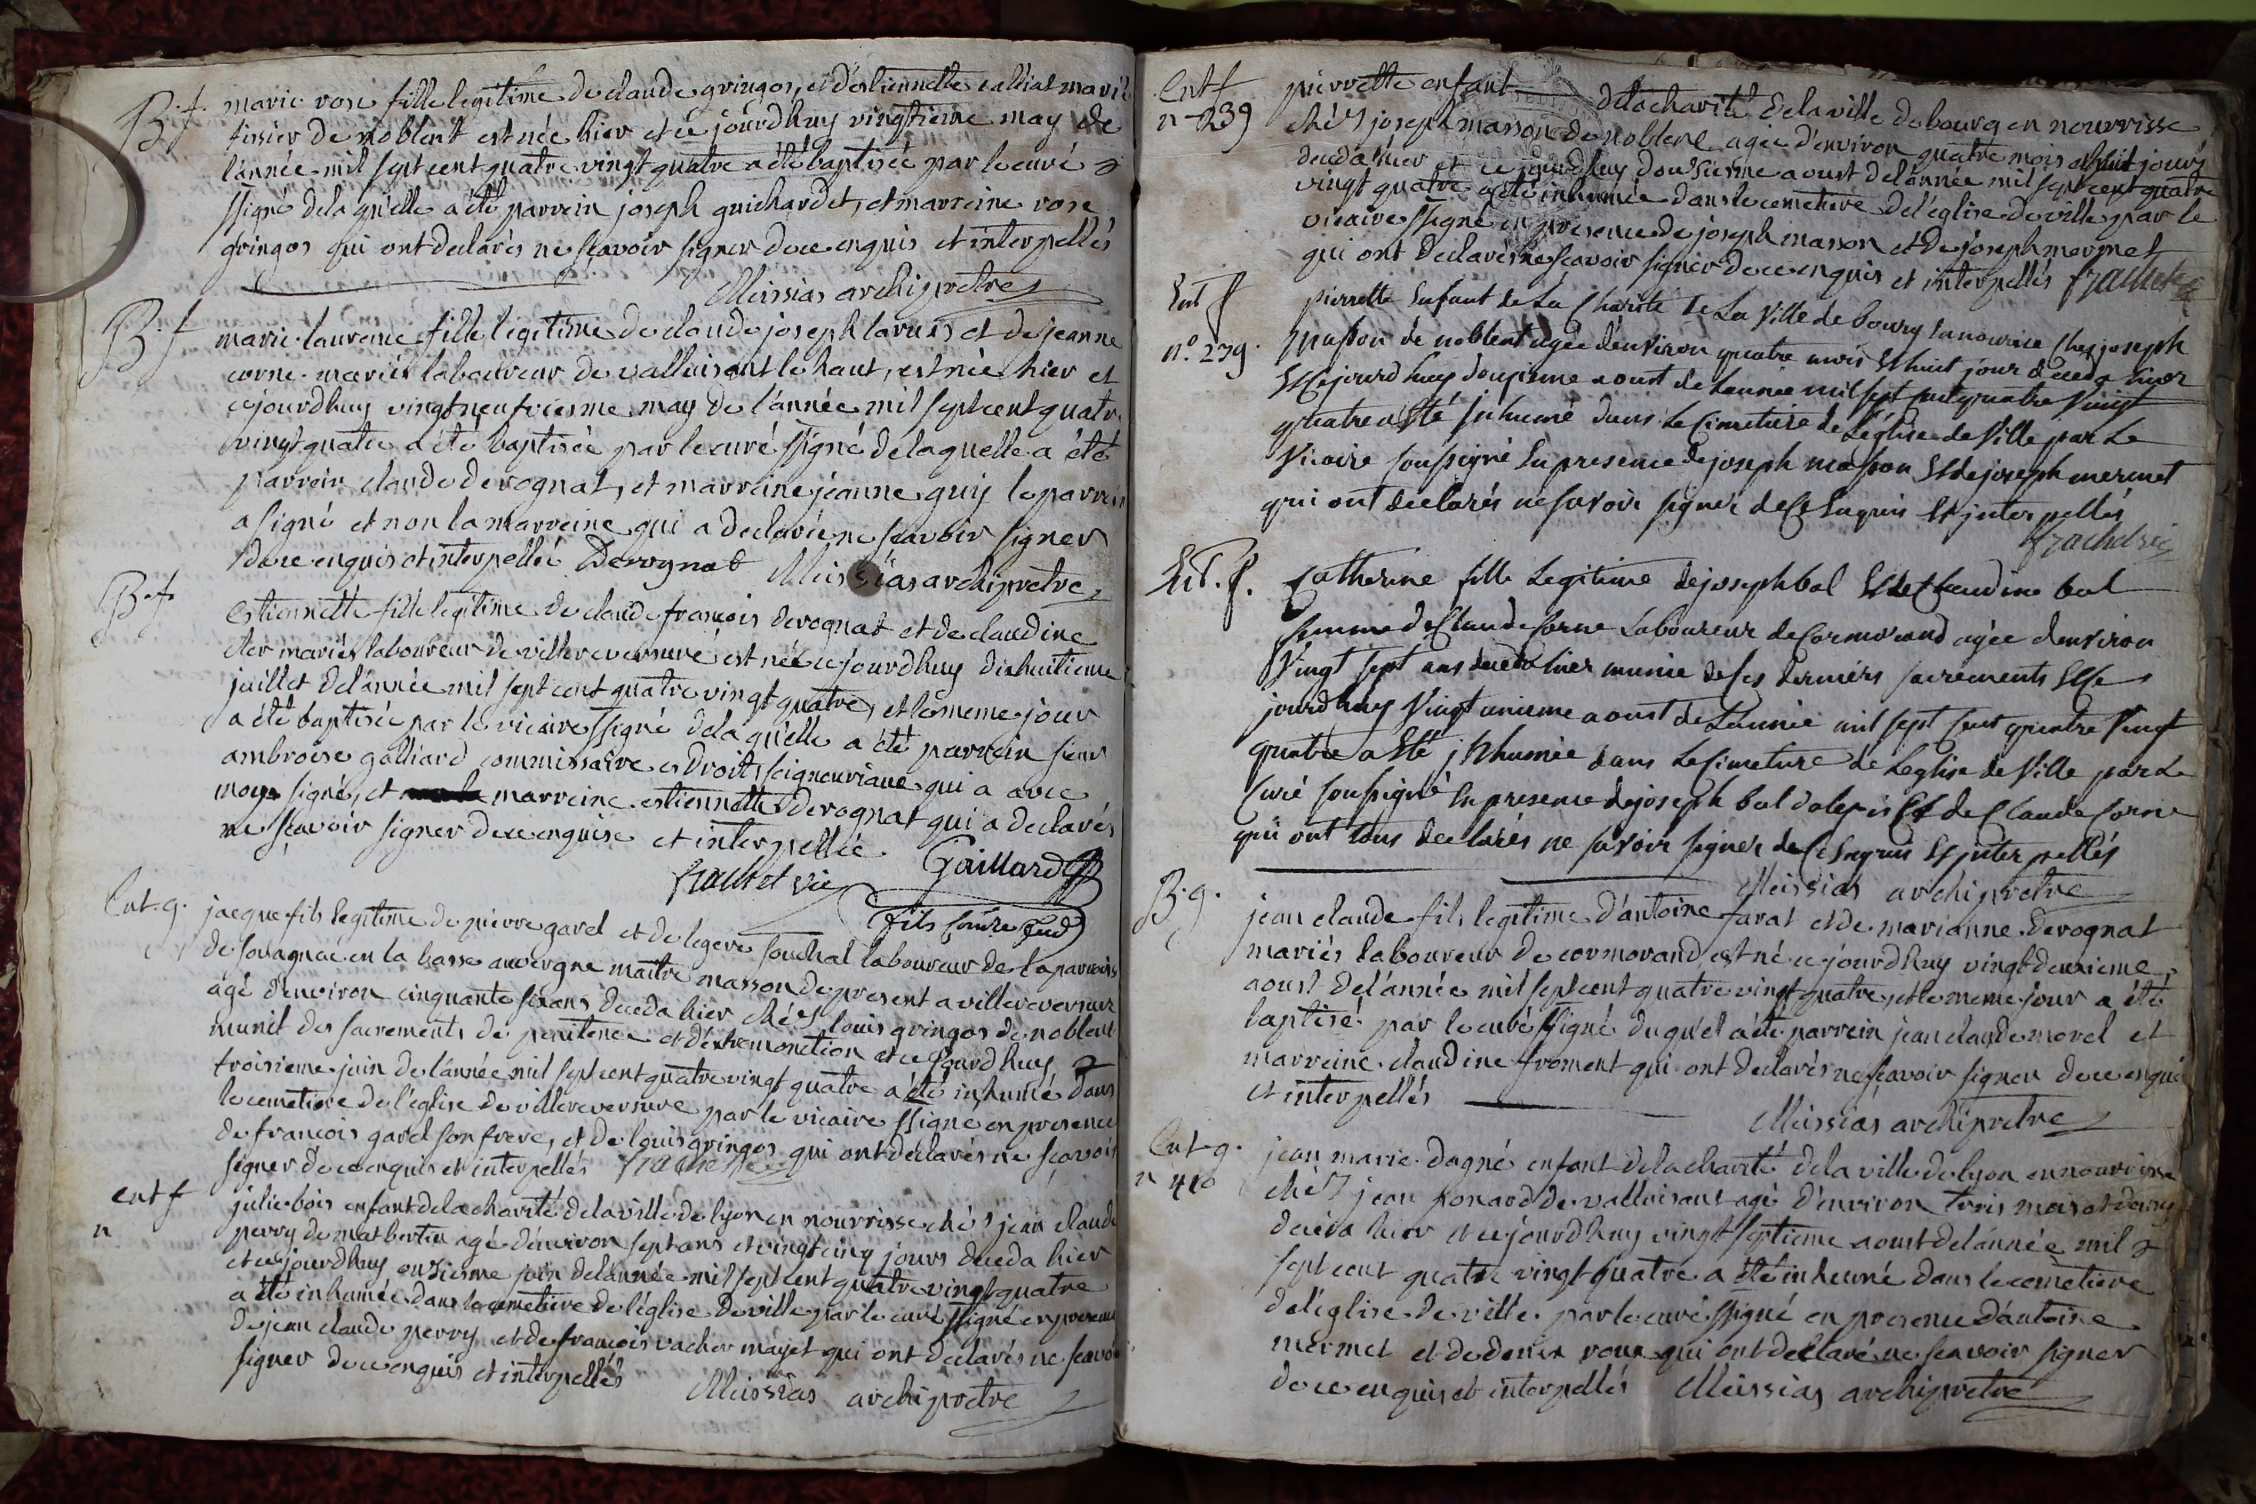 B. f. marie rose fille legitime de claude gringos, et d'estiennette calliat mariés
tissier de noblent est née hier et ce jourdhuy vingtieme may de
l'année mil sept cent quatre vingt quatre a été baptisée par le curé
ssigné de la qu'elle a été parrein joseph guichardet, et marreine rose
gringos qui ont declarés ne sçavoir signer de ce enquis et interpellés
Meissias archiprêtre
B. f marie laurence fille legitime de claude joseph laruas et de jeanne
corne mariés laboureur de valluisant le haut, est née hier et
cejourdhuy vingt neufviesme may de l'année mil sept cent quatre
vingt quatre a été baptisée par le curé ssigné de laquelle a été
parrein claude derognat, et marreine jeanne guy le parrein
a signé et non la marreine qui a declarée ne sçavoir signer
de ce enquis et interpellée Derognat Meissias archiprêtre
B. f. Estiennette fille legitime de claude françois derognat et de claudine
cler mariés laboureur de villereversure est née ce jourdhuy dixhuitieme
juillet de l'année mil sept cent quatre vingt quatre, et le meme jour
a été baptisée par le vicaire ssigné de la qu'elle a été parrein sieur
ambroise galliard commissaire es droits seigneuriaux qui a avec
moy signé, et marreine estiennette derognat qui a declarés
ne sçavoir signer de ce enquise et interpellée
frachet vic Gaillard
fils
Ent. g. jacque fils legitime de pierre garel et de legere souchal laboureur de la parroisse
de sauagnac en la basse auvergne maitre masson de present a villereversure
agé d'environ cinquante six ans deceda hier chés louis gringos de noblent
munit des sacrements de penitence et d'extremonction et ce jourdhuy
troisieme juin de l'année mil sept cent quatre vingt quatre a été inhumé dans
le cemetiere de l'eglise de villereversure par le vicaire ssigné en presence
de françois garel son frere, et de louis gringos qui ont declarés ne sçavoir
signer de ce enquis et interpellés frachet
ent f julie bois enfant de la charité de la ville de lyon en nourrisse chés jean claude
n perry de matbertin agé d'environ sept ans et vingt cinq jours deceda hier
et ce jourdhuy onziesme juin de l'année mil sept cent quatre vingt quatre
a été inhumée dans le cemetiere de l'église de ville par le curé ssigné en presence
de jean claude perry et de françois vacher mayet qui ont declarés ne sçavoir
signer de ce enquis et interpellés Meissias archiprêtre
Ent f pierrette enfant de la charité de la ville de bourg en nourrisse
n 239 chés joseph masson de noblent agée d'environ quatre mois et huit jours
deceda hier et ce jourdhuy douziesme aoust de l'année mil sept cent quatre
vingt quatre a été inhumée dans le cemetiere de l'église de ville par le
vicaire ssigné en presence de joseph masson et de joseph mermet
qui ont declarés ne sçavoir signer de ce enquis et interpellés frachet
Ent f pierrette Enfant de La Charité de La Ville de bourg En nourrice Chez joseph
n° 239. Masson de noblent agée denviron quatre mois Et huit jour deceda hier
Et Cejourdhuy douzieme aoust de Lannée mil sept Cent quatre Vingt
quatre a Eté Inhumé dans Le Cimetiere de Léglise de Ville par Le
Vicaire soussigné En presence de joseph masson Et de joseph mermet
qui ont declarés ne savoir signer de Ce Enquis Et interpellés
frachet vic
Ent. f. Catherine fille Legitime de joseph bal Et de Claudine bal
femme de Claude Corne Laboureur de Cormorand agée denviron
Vingt sept ans deceda hier munie de ses derniers sacrements Et Ce
jourdhuy Vingt unieme aoust de Lannée mil sept Cent quatre Vingt
quatre a Eté jnhumée dans Le Cimetiere de Léglise de Ville par Le
Curé soussigné En presence de joseph bal Et de Claude Corne
qui ont tous declarés ne savoir signer de Ce Enquis Et interpellés
Meissias archiprêtre
B. g. jean claude fils legitime d'antoine farat et de marianne derognat
mariés laboureur de cormorand est né ce jourdhuy vingt deuxieme
aoust de l'année mil sept cent quatre vingt quatre, et le meme jour a été
baptisé par le curé ssigné du quel a été parrein jean claude morel et
marreine claudine froment qui ont declarés ne sçavoir signer de ce enquis
et interpellés
Meissias archiprêtre
Ent g. jean marie dagné enfant de la charité de la ville de lyon en nourrisse
n 410 chés jean ponard de valluisant agé d'environ trois mois et demy
deceda hier et ce jourdhuy vingt septieme aoust de l'année mil
sept cent quatre vingt quatre a été inhumé dans le cemetiere
de l'église de ville par le curé ssigné en presence d'antoine
mermet et de denis roux qui ont declaré ne sçavoir signer
de ce enquis et interpellés Meissias archiprêtre